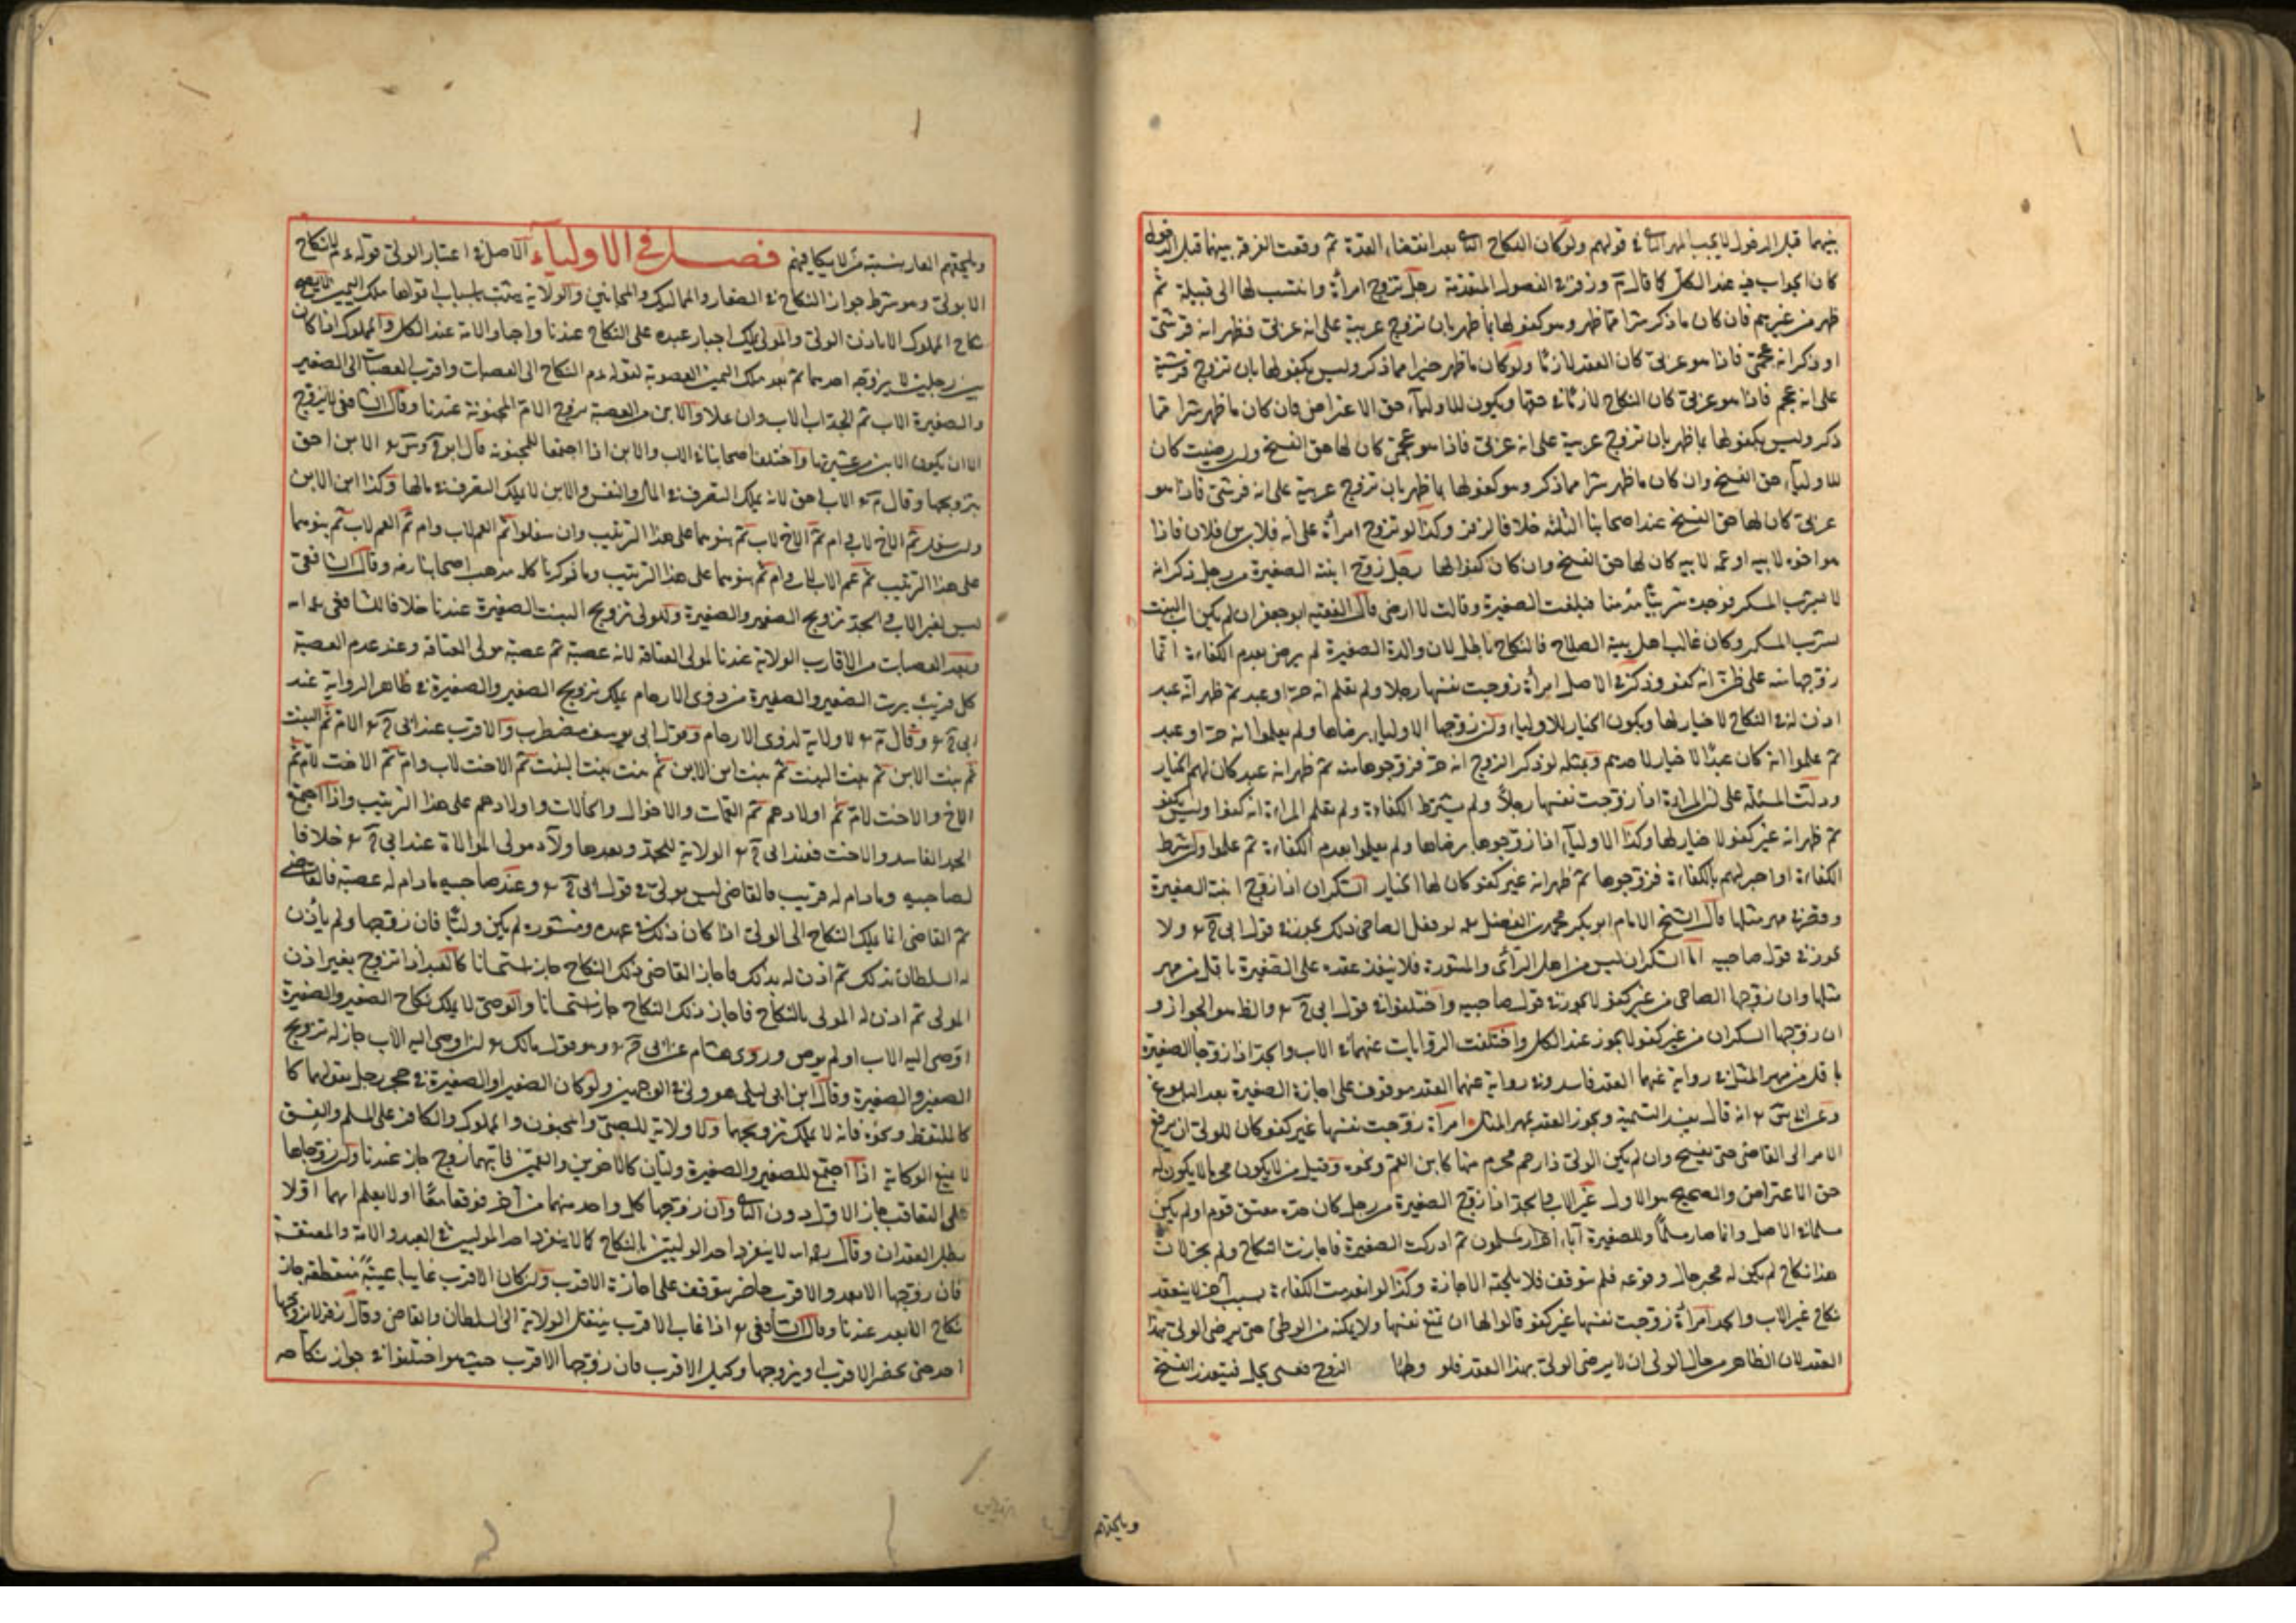 بينهما قبل الدخول لا يجب المهر الثاني في قولهم ولو كان النكاح الثاني بعد انقضاء العدة ثم وقعت الفرقة بينهما قبل الدخول
كان الجواب فيه عند الكل كما قال زفر في الفصول المتقدمة رجل تزوج امرأة وانتسب لها الى قبيلة ثم
ظهر من غيرهم فان كان ما ذكر شرا مما ظهر وهو كفو لها بما ظهر بان تزوج عربية على انه عربي فظهر انه قرشي
او ذكر انه عجمي فاذا هو عربي كان العقد لازما ولو كان ما ظهر خيرا مما ذكر وليس بكفو لها بان تزوج قرشية
على انه عجم فاذا هو عربي كان النكاح لازما في حقها ويكون للاولياء حق الاعتراض وان كان ما ظهر شرا مما
ذكر وليس بكفو لها بما ظهر بان تزوج عربية على انه عربي فاذا هو عجمي كان لها حق الفسخ وان رضيت كان
للاولياء حق الفسخ وان كان ما ظهر شرا مما ذكر وهو كفو لها بما ظهر بان تزوج عربية على انه قرشي فاذا هو
عربي كان لها حق الفسخ عند اصحابنا الثلثة خلافا لزفر وكذا لو تزوج امرأة على انه فلان بن فلان فاذا
هو اخوه لابيه او عمه لابيه كان لها حق الفسخ وان كان كفوا لها رجل زوج ابنته الصغيرة من رجل ذكر انه
لا يشرب المسكر فوجده شريبا مدمنا فبلغت الصغيرة وقالت لا ارضى قال الفقيه ابو جعفر ان لم يكن اب البنت
يشرب المسكر وكان غالب اهل بيته الصلاح فالنكاح باطل لان والد الصغيرة لم يرض بعدم الكفاءة انما
زوجها منه على ظن انه كفو وذكر في الاصل امرأة زوجت نفسها رجلا ولم تعلم انه حر او عبد ثم ظهر انه عبد
اذن له في النكاح لا خيار لها ويكون الخيار للاولياء وان زوجها الاولياء برضاها ولم يعلموا انه حر او عبد
ثم علموا انه كان عبدا لا خيار لاحدهم وبمثله لو ذكر الزوج انه حر فزوجوها منه ثم ظهر انه عبد كان لهم الخيار
ودلت المسئلة على ان المرأة اذا زوجت نفسها رجلا ولم تشترط الكفاءة ولم تعلم المراة انه كفوا وليس بكفو
ثم ظهر انه غير كفو لا خيار لها وكذا الاولياء اذا زوجوها برضاها ولم يعلموا بعدم الكفاءة ثم علموا وان شرط
الكفاءة او اخبرهم بالكفاءة فزوجوها ثم ظهر انه غير كفو كان لها الخيار السكران اذا زوج ابنته الصغيرة
وقصر في مهر مثلها قال الشيخ الامام ابو بكر محمد بن الفضل لو فعل الصاحي ذلك يجوز في قول ابي ح ولا
يجوز في قول صاحبيه اما السكران ليس من اهل الرأي والمشورة فلا ينفذ عقده على الصغيرة باقل من مهر
مثلها وان زوجها الصاحي من غير كفو لا يجوز في قول صاحبيه واختلفوا في قول ابي ح والظ هو الجواز و
ان زوجها السكران من غير كفو لا يجوز عند الكل واختلفت الروايات عنهما في الاب والجد اذا زوجا الصغيرة
باقل من مهر المثل في رواية عنهما العقد فاسد وفي رواية عنهما العقد موقوف على اجازة الصغيرة بعد البلوغ
انه قال يفسد التسمية ويجوز العقد بمهر المثل امرأة زوجت نفسها غير كفو كان للولي ان يرفع
الامر الى القاضي حتى يفسخ وان لم يكن الولي ذا رحم محرم منها كابن العم ونحوه وقيل من لا يكون محرما لا يكون له
حق الاعتراض والصحيح هو الاول غير الاب والجد اذا زوج الصغيرة من رجل كان جده معتق قوم او لم يكن
مسلما في الاصل وانما صار مسلما وللصغيرة آباء احرار مسلمون ثم ادركت الصغيرة فاجازت النكاح ولم يجز لان
هذا نكاح لم يكن له مجيز حال وقوعه فلم يتوقف فلا يلحقه الاجازة وكذا لو انعدمت الكفاءة بسبب آخر لا ينعقد
نكاح غير الاب والجد امرأة زوجت نفسها غير كفو قالوا لها ان تمنع نفسها ولا تمكنه من الوطئ حتى يرضى الولي بهذا
العقد لان الظاهر من حال الولي ان لا يرضى الولي بهذا العقد فلو وطئها الزوج فعسى يحبل فيتعذر الفسخ
ويلحقهم
ويلحقهم العار بنسبة من لا يكافيهم فصل في الاولياء الاصل في اعتبار الولي قوله عم لا نكاح
الا بولي وهو شرط جواز النكاح في الصغار والمماليك والمجانين والولاية يثبت باسباب اقواها ملك اليمين لا يصح
نكاح المملوك الا باذن الولي والمولى يملك اجبار عبده على النكاح عندنا واجبار الامة عند الكل والمملوك اذا كان
بين رجلين لا يزوجه احدهما ثم بعد ملك اليمين العصوبة لقوله عم النكاح الى العصبات واقرب العصبات الى الصغير
والصغيرة الاب ثم الجد اب الاب وان علا والابن من العصبة يزوج الام المجنونة عندنا وقال الشافعي لا يزوج
الا ان يكون الابن من عشيرتها واختلف اصحابنا في الاب والابن اذا اجتمعا للمجنونة قال ابو ح وس الابن احق
بتزويجها وقال م الاب احق لانه يملك التصرف في المال والنفس والابن لا يملك التصرف في مالها وكذا ابن الابن
وان سفل ثم الاخ لاب وام ثم الاخ لاب ثم بنوهما على هذا الترتيب وان سفلوا ثم العم لاب وام ثم العم لاب ثم بنوهما
على هذا الترتيب ثم عم الاب لاب وام ثم بنوهما على هذا الترتيب وما ذكرنا كله مذهب اصحابنا رضه وقال الشافعي
ليس لغير الاب والجد تزويج الصغير والصغيرة وللولي تزويج البنت الصغيرة عندنا خلافا للشافعي
وبعد العصبات من الاقارب الولاية عندنا لمولى العتاقة لانه عصبة ثم عصبة مولى العتاقة وعند عدم العصبة
كل قريب يرث الصغير والصغيرة من ذوى الارحام يملك تزويج الصغير والصغيرة في ظاهر الرواية عند
ابي ح وقال م لا ولاية لذوى الارحام وقول ابي يوسف مضطرب والاقرب عند ابي ح الام ثم البنت
ثم بنت الابن ثم بنت البنت ثم بنت ابن الابن ثم بنت بنت البنت ثم الاخت لاب وام ثم الاخت لاب ثم
الاخ والاخت لام ثم اولادهم ثم العمات والاخوال والخالات واولادهم على هذا الترتيب واذا اجتمع
الجد الفاسد والاخت فعند ابي ح الولاية للجد وبعدها ولاء مولى الموالاة عند ابي ح خلافا
لصاحبيه وما دام له قريب فالقاضي ليس بولي في قول ابي ح وعند صاحبيه ما دام له عصبة فالقاضي
ثم القاضي انما يملك النكاح الى الولي اذا كان ذلك في عهده ومنشوره لم يكن وليا فان زوجها ولم يأذن
له السلطان بذلك ثم اذن له بذلك فاجاز القاضي ذلك النكاح جاز استحسانا كالعبد اذا تزوج بغير اذن
المولى ثم اذن له المولى بالنكاح فاجاز ذلك النكاح جاز استحسانا والوصي لا يملك نكاح الصغير والصغيرة
اوصى اليه الاب او لم يوص وروى هشام عن ابي ح وهو قول مالك ان اوصى اليه الاب جاز له تزويج
الصغير والصغيرة وقال ابن ابي ليلى هو ولي في الوجهين ولو كان الصغير او الصغيرة في حجر رجل يعولهما كما
كالملتقط ونحوه فانه لا يملك تزويجهما ولا ولاية للصبي والمجنون والمملوك والكافر على المسلم والفسق
لا يمنع الوكاية اذا اجتمع للصغير والصغيرة وليان كالاخوين والعمين فايهما زوج جاز عندنا وان زوجاها
على التعاقب جاز الاول دون الثاني وان زوجها كل واحد منهما من آخر فوقعا معا او لا يعلم ايهما اولا
بطل العقدان وقال لا ينفرد احد الوليين بالنكاح كما لا ينفرد احد الموليين في العبد والامة والمعتقة
فان زوجها الابعد والاقرب حاضر يتوقف على اجازة الاقرب وان كان الاقرب غايبا غيبة منقطعة جاز
نكاح الابعد عندنا وقال الشافعي اذا غاب الاقرب ينتقل الولاية الى السلطان والقاضي وقال زفر لا يزوجها
احد حتى يحضر الاقرب او يزوجها وكيل الاقرب فان زوجها الاقرب حيث هو اختلفوا في جواز نكاحه